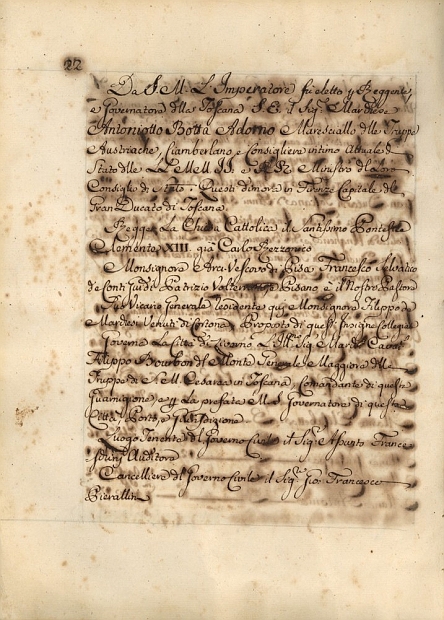 22
Da S. M. L'Imperatore fu eletto Reggente
e Governatore della Toscana S. E. il Sig.
Antoniotto Botta Adorno Maresciallo dlle Truppe
Austriache, Ciamberlano e Consigliere intimo Attuale di
Stato dlle LL. MM. II. e Ministro di
Consiglio di Stato. Questi dimora in Firenze Capitale dl
Gran Ducato di Toscana
Regge La Chiesa Cattolica il Santissimo Pontefice
Clemente XIII. già Carlo Rezzonico
Monsignore Arcivescovo di Pisa Francesco
de Conti Guidi Patrizio Pisano è il Nostro Pastore
Vicario Generale Residente qui Monsignore Filippo
Venuti di Cortona Proposto di quest' Insigne Collegiata
Governa La Città di Livorno L'Ill. Sig. March.
Filippo Bourbon dl Monte Generale Maggiore dlle
Truppe di S. M. Cesarea in Toscana, Comandante di questa
Guarnigione e la prefata M. S. Governatore di questa
Città, Porto, e Giurisdizione
Luogo Tenente dl Governo Civile il Sig.
Auditore
Cancelliere dl Governo Civile il Sig. Gio. Francesco
Pierallini